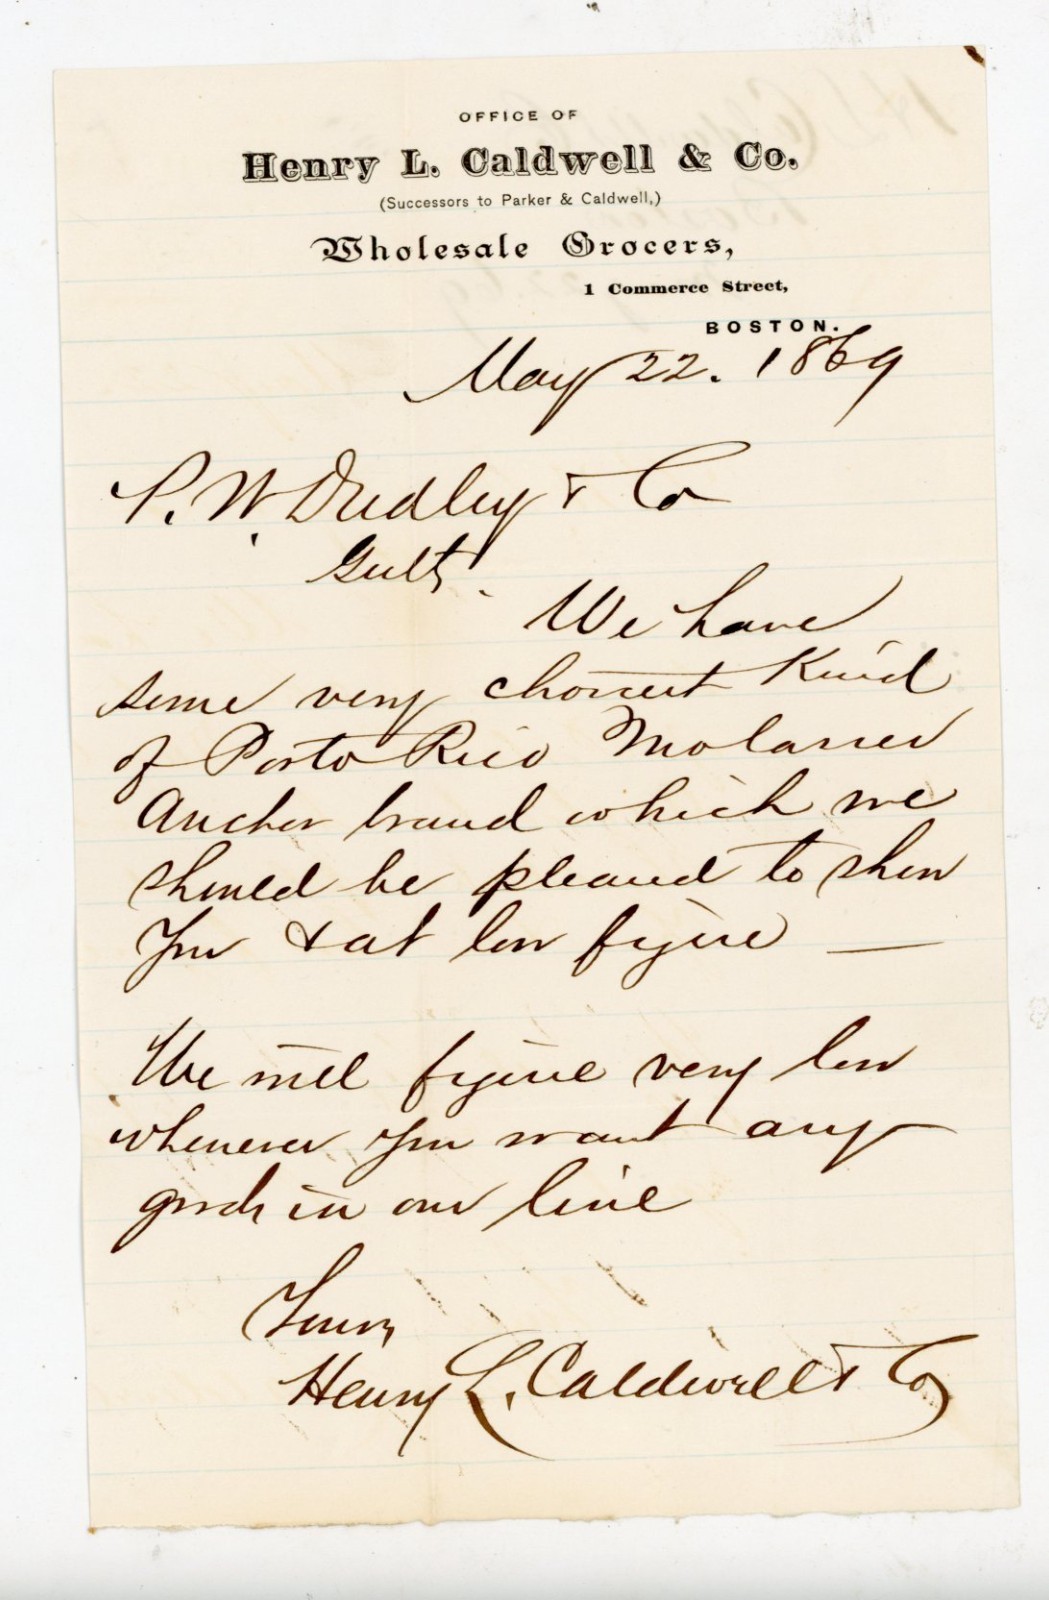 OFFICE OF
Henry L. Caldwell & Co.
(Successors to Parker & Caldwell,)
Wholesale Grocers,
1 Commerce Street,
BOSTON.
May 22. 1869
P. W. Dudley & Co
Gents.
We have
some very choicest kind
of Porto Rico Molasses
Anchor brand which we
should be pleased to show
you & at low figure —
We will figure very low
whenever you want any
goods in our line
Yours
Henry L. Caldwell & Co